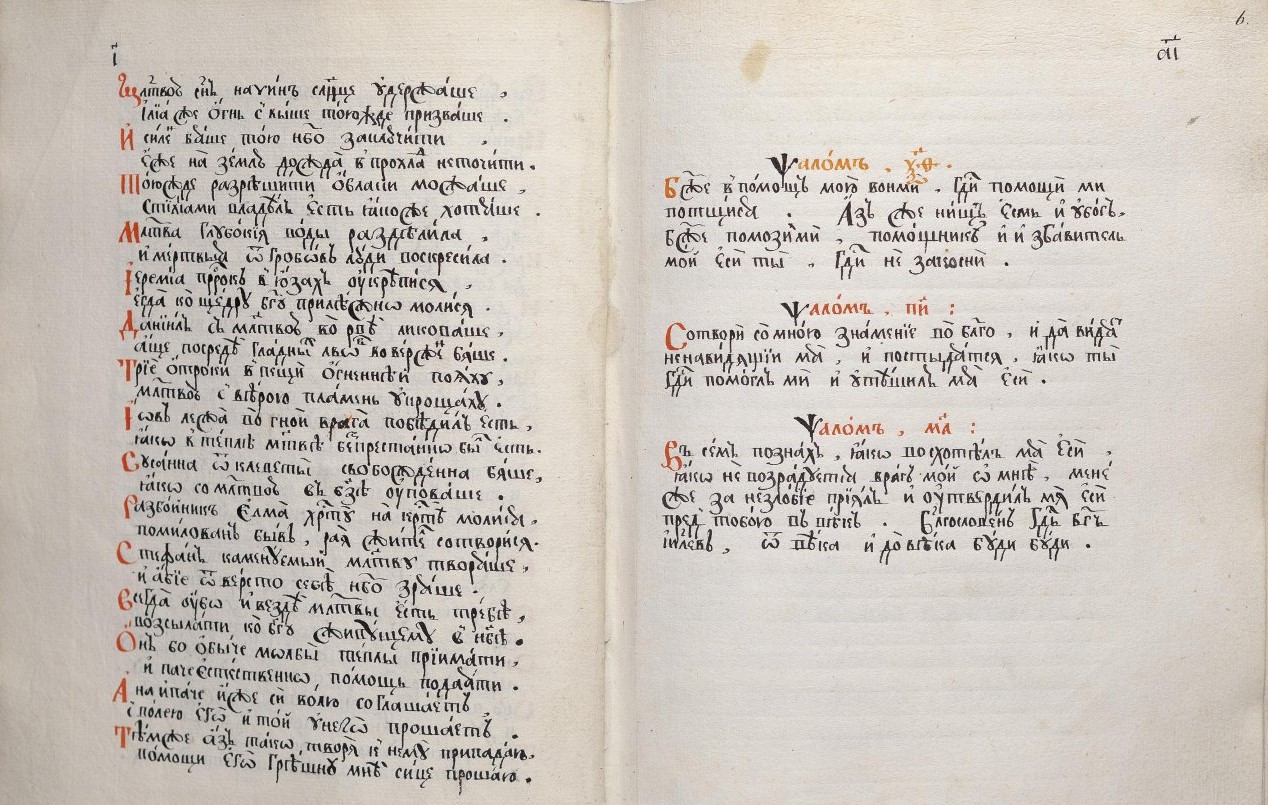 і҃
Мл҃твою сн҃ъ наѵинъ сл҃нце ѹ҆держаше ,
Илїа же огнь съвыше тоюжде призваше .
И силѣ бѧше тою нб҃о заключити .
Еже на землю дождѧ в прохладꙋ неточити .
Тоюжде разрѣшити облаки можаше ,
стихїами владѣлъ есть ꙗкоже хотѧше .
Мл҃тва глубокїѧ воды раздѣлила ,
и мертвыѧ ѿ гробовъ люди воскресила .
Іеремїа пррⷪ҇къ в юзахъ оукрѣписѧ ,
егда ко щедру бг҃у прилѣжнѡ молисѧ .
Данїилъ съ мл҃твою во рвѣ ликоваше ,
аще посредѣ гладныⷯ львѡⷡ во верженъ бѧше .
Трїе отроки в пещи огненнѣй поѧху ,
мл҃твою с вѣрою пламень ѹпрощаху .
Іовъ лежа во гнои врага побѣдилъ есть ,
ꙗкѡ в теплѣ мл҃твѣ беⷥпрестаннѡ былъ есть .
Сусанна ѿ клеветы свобождѣнна бѧше ,
ꙗкѡ со мл҃твою въ бз҃ѣ оуповаше .
Разбойникъ елма хрⷭ҇ту на крⷭ҇тѣ молисѧ ,
помилованъ бывъ , раѧ жителⷧ сотворисѧ .
Стефанъ каменуемый мл҃тву творѧше ,
и абїе ѿверсто себѣ нб҃о зрѧше .
Всегда оубѡ и вездѣ мл҃твы есть требѣ ,
возсылати ко бг҃у живущему в нб҃ѣ .
Онъ бо обыче мѡлбы теплы прїимати ,
и паче естественнѡ , помощь подаѧти .
А наипаче иже си волю соглашаетъ
с волею егѡ и той у негѡ прошаетъ .
Тѣмже азъ такѡ творѧ к нему припадаю ,
помощи егѡ грѣшну мнѣ сице прошаю .
6.
аі҃
Ѱаломъ , ѯ҃ѳ .
Бж҃е в помощъ мою вонми . Гд҃и помощи ми
потщисѧ . Азъ же нищъ есмь и убогъ ,
бж҃е помози ми , помощникъ и избавитель
мой еси ты , Гд҃и не закосни .
Ѱаломъ , пи҃ :
Сотвори со мною знаменїе во бл҃го , и да видѧⷮ
ненавидѧщїи мѧ , и постыдѧтсѧ , ꙗкѡ ты
Гд҃и помоглъ ми и утѣшилъ мѧ еси .
Ѱаломъ , ма҃ :
Въ семъ познахъ , ꙗкѡ восхотѣлъ мѧ еси ,
ꙗкѡ не возрадуетсѧ врагъ мой ѡ мнѣ , мене
же за незлобїе прїѧлъ и оутвердилъ мѧ еси
предъ тобою въ вѣкъ . Бл҃гословенъ Гд҃ь бг҃ъ
іил҃евъ , ѿ вѣка и до вѣка буди буди .